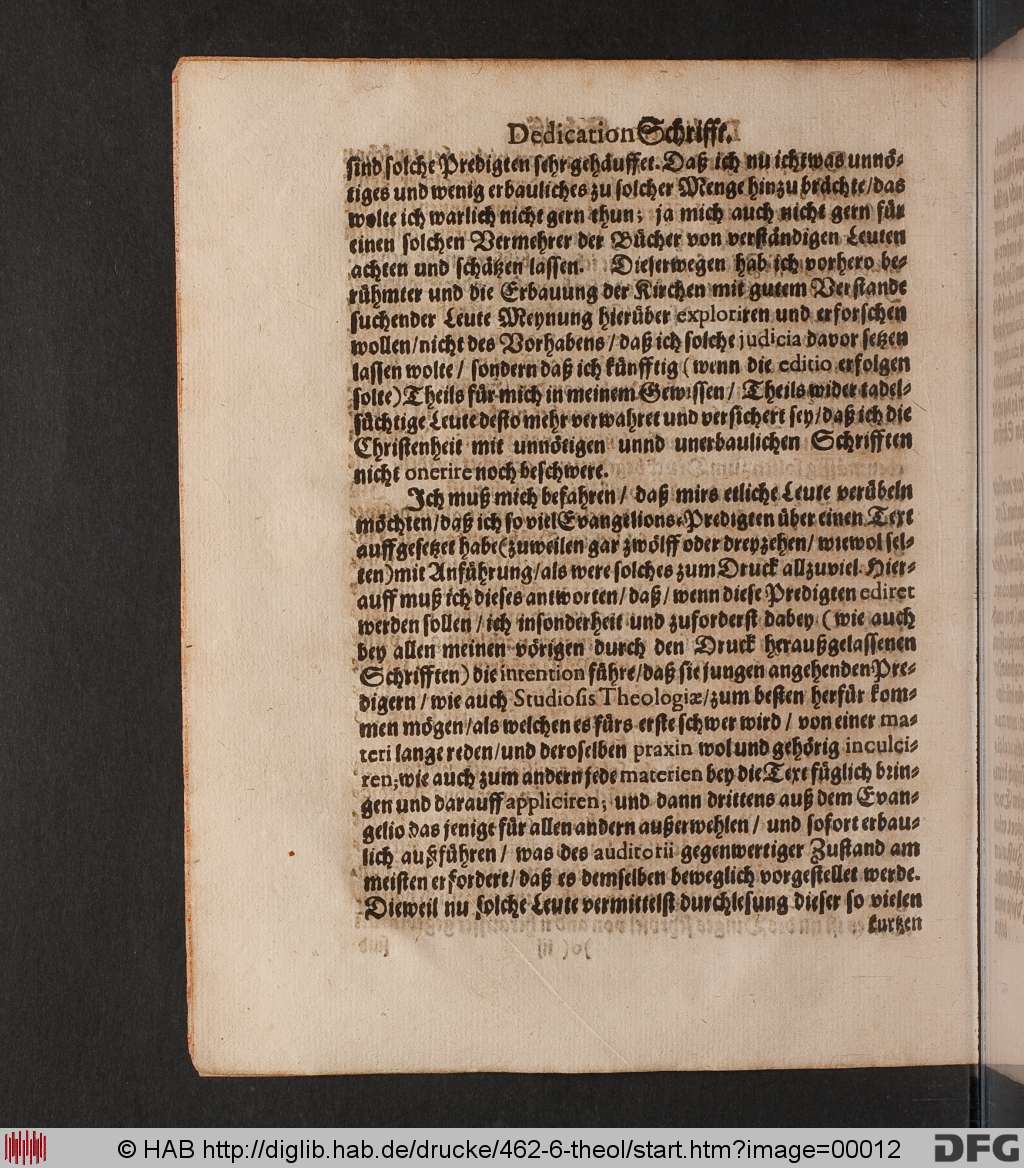 Dedication Schrifft.
sind solche Predigten sehr gehäuffet. Daß ich nu ichtwas unnö-
tiges und wenig erbauliches zu solcher Menge hinzu brächte/das
wolte ich warlich nicht gern thun; ja mich auch nicht gern für
einen solchen Vermehrer der Bücher von verständigen Leuten
achten und schätzen lassen. Dieserwegen hab ich vorhero be-
rühmter und die Erbauung der Kirchen mit gutem Verstande
suchender Leute Meynung hierüber exploriren und erforschen
wollen/nicht des Vorhabens/daß ich solche judicia davor setzen
lassen wolte/ sondern daß ich künfftig (wenn die editio erfolgen
solte) Theils für mich in meinem Gewissen/ Theils wider tadel-
süchtige Leute desto mehr verwahret und versichert sey/daß ich die
Christenheit mit unnötigen unnd unerbaulichen Schrifften
nicht onerire noch beschwere.
Ich muß mich befahren/ daß mirs etliche Leute verübeln
möchten/daß ich so viel Evangelions-Predigten über einen Text
auffgesetzet habe (zuweilen gar zwölff oder dreyzehen/ wiewol sel-
ten) mit Anführung/als were solches zum Druck allzuviel. Hier-
auff muß ich dieses antworten/daß/wenn diese Predigten ediret
werden sollen/ich insonderheit und zuforderst dabey (wie auch
bey allen meinen vörigen durch den Druck heraußgelassenen
Schrifften) die intention führe/daß sie jungen angehenden Pre-
digern/wie auch Studiosis Theologiæ/zum besten herfür kom-
men mögen/als welchen es fürs erste schwer wird/ von einer ma-
teri lange reden/und deroselben praxin wol und gehörig inculci-
ren; wie auch zum andern jede materien bey die Text füglich brin-
gen und darauff appliciren; und dann drittens auß dem Evan-
gelio das jenige für allen andern außerwehlen/ und sofort erbau-
lich außführen/ was des auditorii gegenwertiger Zustand am
meisten erfordert/ daß es demselben beweglich vorgestellet werde.
Dieweil nu solche Leute vermittelst durchlesung dieser so vielen
kurtzen
© HAB http://diglib.hab.de/drucke/462-6-theol/start.htm?image=00012
DFG